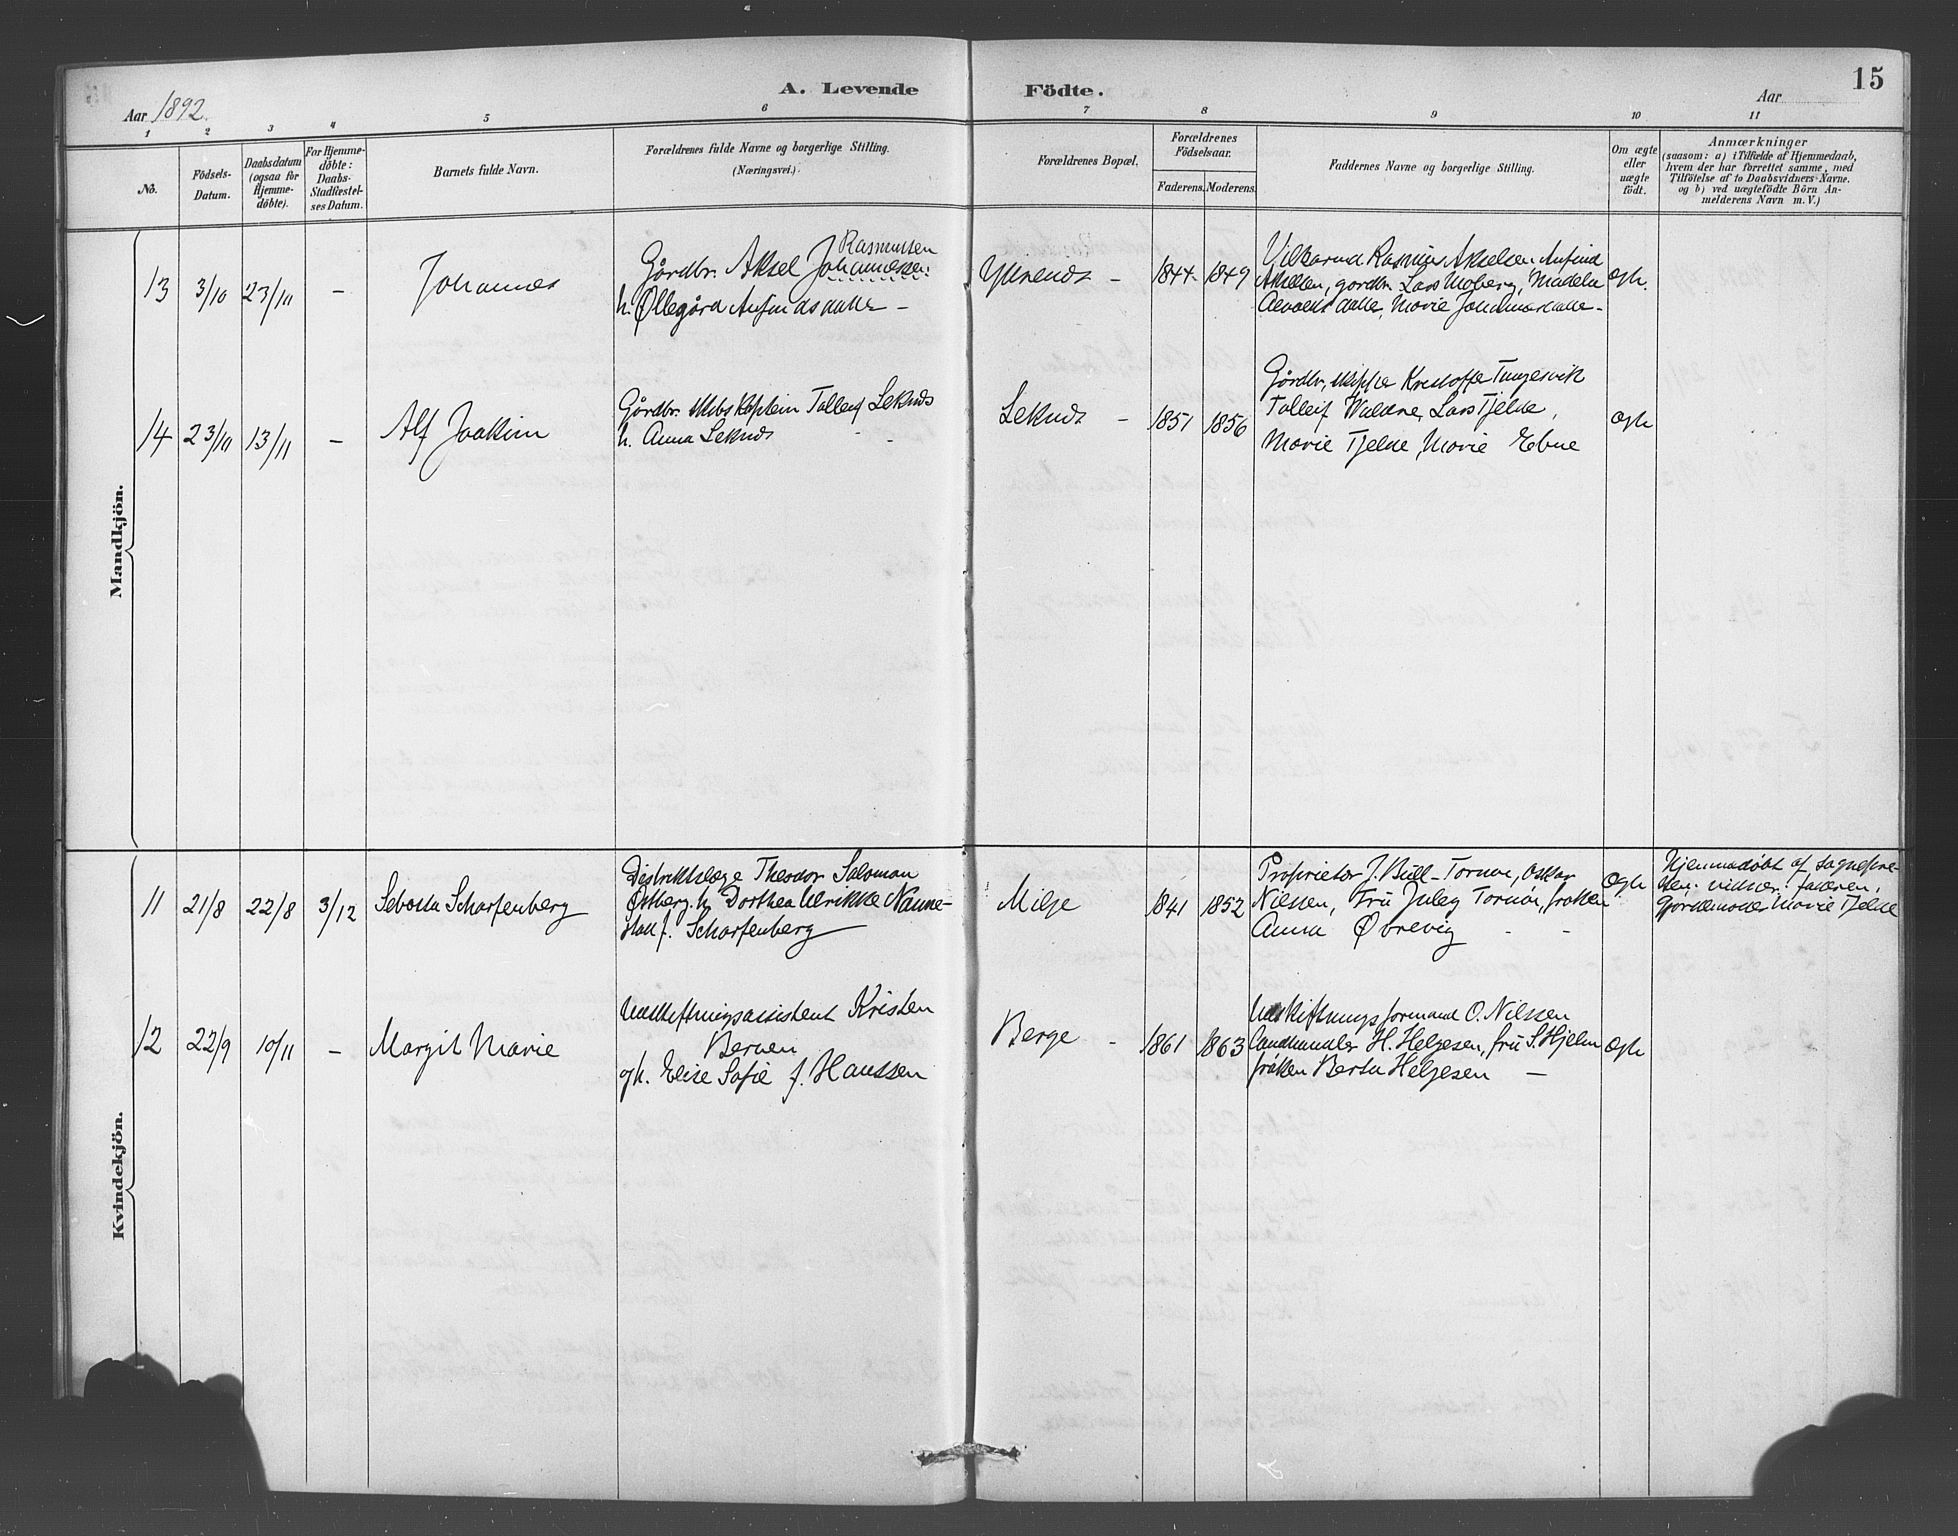 A. Levende Födte.
15
Aar 1892.
Aar
1 2 3 4 5 6 7 8 9 10 11
No.
Födsels-
Datum.
Daabsdatum
(ogsaa for
Hjemme-
döbte).
For Hjemme-
döbte:
Daabs-
Stadfæstel-
ses Datum.
Barnets fulde Navn.
Forældrenes fulde Navne og borgerlige Stilling.
(Næringsvei.)
Forældrenes Bopæl.
Forældrenes
Födselsaar.
Faderens. Moderens.
Faddernes Navne og borgerlige Stilling.
Om ægte
eller
uægte
født.
Anmærkninger
(saasom: a) i Tilfælde af Hjemmedaab,
hvem der har forrettet samme, med
Tilföielse af to Daabsvidners Navne.
og b) ved uægtefödte Börn An-
melderens Navn m. V.)
Mandkjön.
13 3/10 23/10 – Johannes
Rasmussen
Gårdbr. Aksel Johannessen
h. Øllegård Anfindsdatter –
1844 1849
Rasmus Akselsen Anfind
Akselsen, gårdbr. Lars Moberg,
Marie
ægte.
14 23/10 13/11 – Alf Joakim
Gårdbr. Skibskaptein Tolleif Leknes
h. Anna Leknes
Leknes – 1851 1856
Gårdbr, skipper Kristoffer Tungesvik
Tolleif Lars Tjelde,
Marie Tjelde, Marie Ebne
ægte
Kvindekjön.
11 21/8 22/8 3/12 Sebosta Scharfenberg
Distriktslæge Theodor Salomon
Østberg h. Dorthea Ulrikke Nanne-
stad f. Scharfenberg
Milje 1841 1852
Proprietær J. Bull-Tornøe, Oskar
Nilssen, Fru Juley Tornøe, frøken
Anna Øvrevig - -
ægte
Hjemmedøbt af sognepre-
sten; vidner: faderen,
Gjordemoder Marie Tjelde
12 22/9 10/11 – Margit Marie
Udskiftningsassistent Kristen
Bernen
og h. Elise Sofie f. Hanssen
Berge - 1861 1863
Udskiftningsformand O. Nilssen
Landhandler H. Helgesen, fru S. Hjelm
frøken Berta Helgesen –
ægte